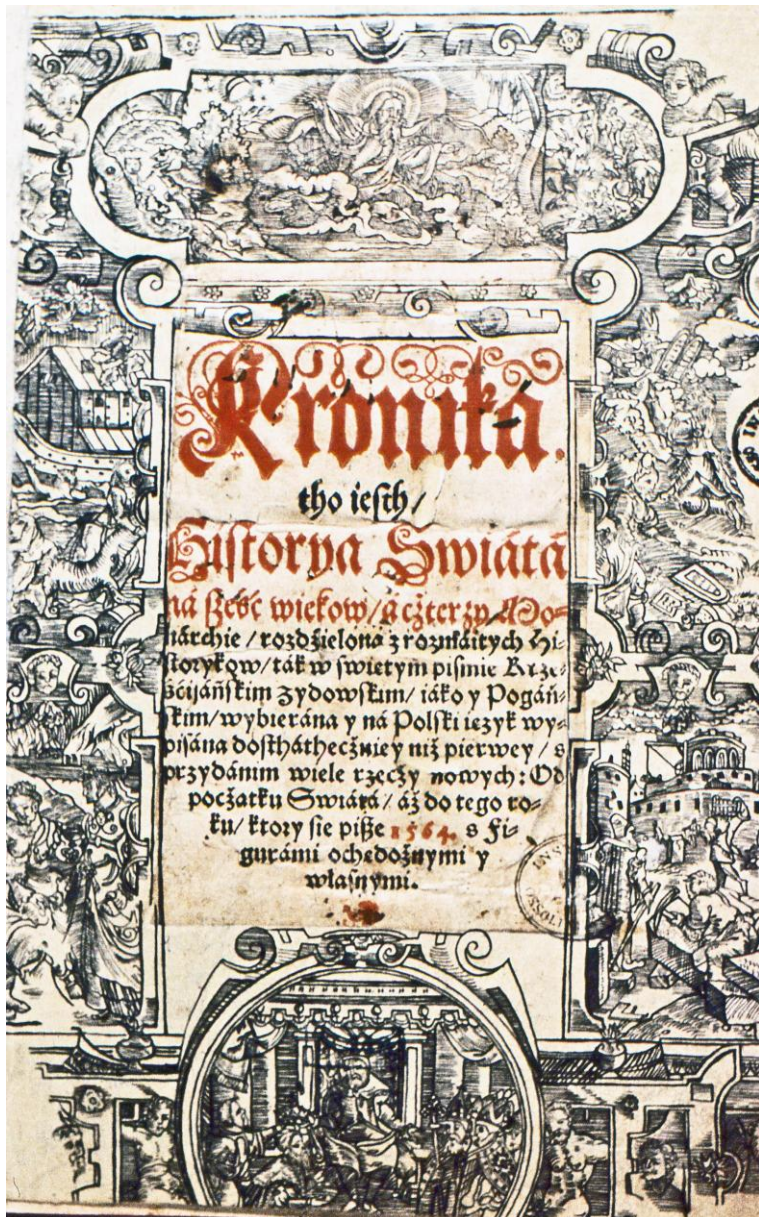 Kroniká.
tho iesth/
Historya Swiátá
ná sześć wiekow/ á czterzy Mo-
nárchie/ rozdźielona z rozmáitych Hi-
storykow/ ták w swietym pismie Krze-
śćijáńskim Zydowskim/ iáko y Pogáń-
skim/ wybierána y ná Polski iezyk wy-
pisána dostháthecżniey niż pierwey/ s
przydánim wiele rzecży nowych: Od
pocżątku Swiátá/ áż do tego ro-
ku/ ktory sie pisze 1564. s Fi-
gurámi ochedożnymi y
własnymi.